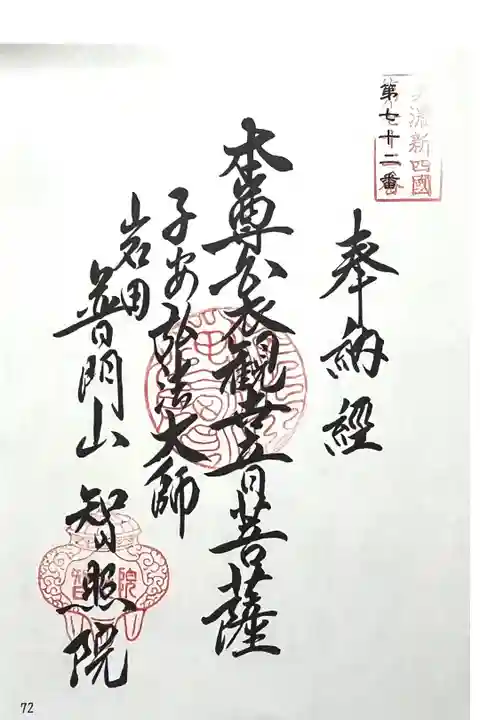 流新四國
第七十二番
奉納經
本尊 衣觀世音菩薩
子安弘法大師
岩田 普門山 智照院
72